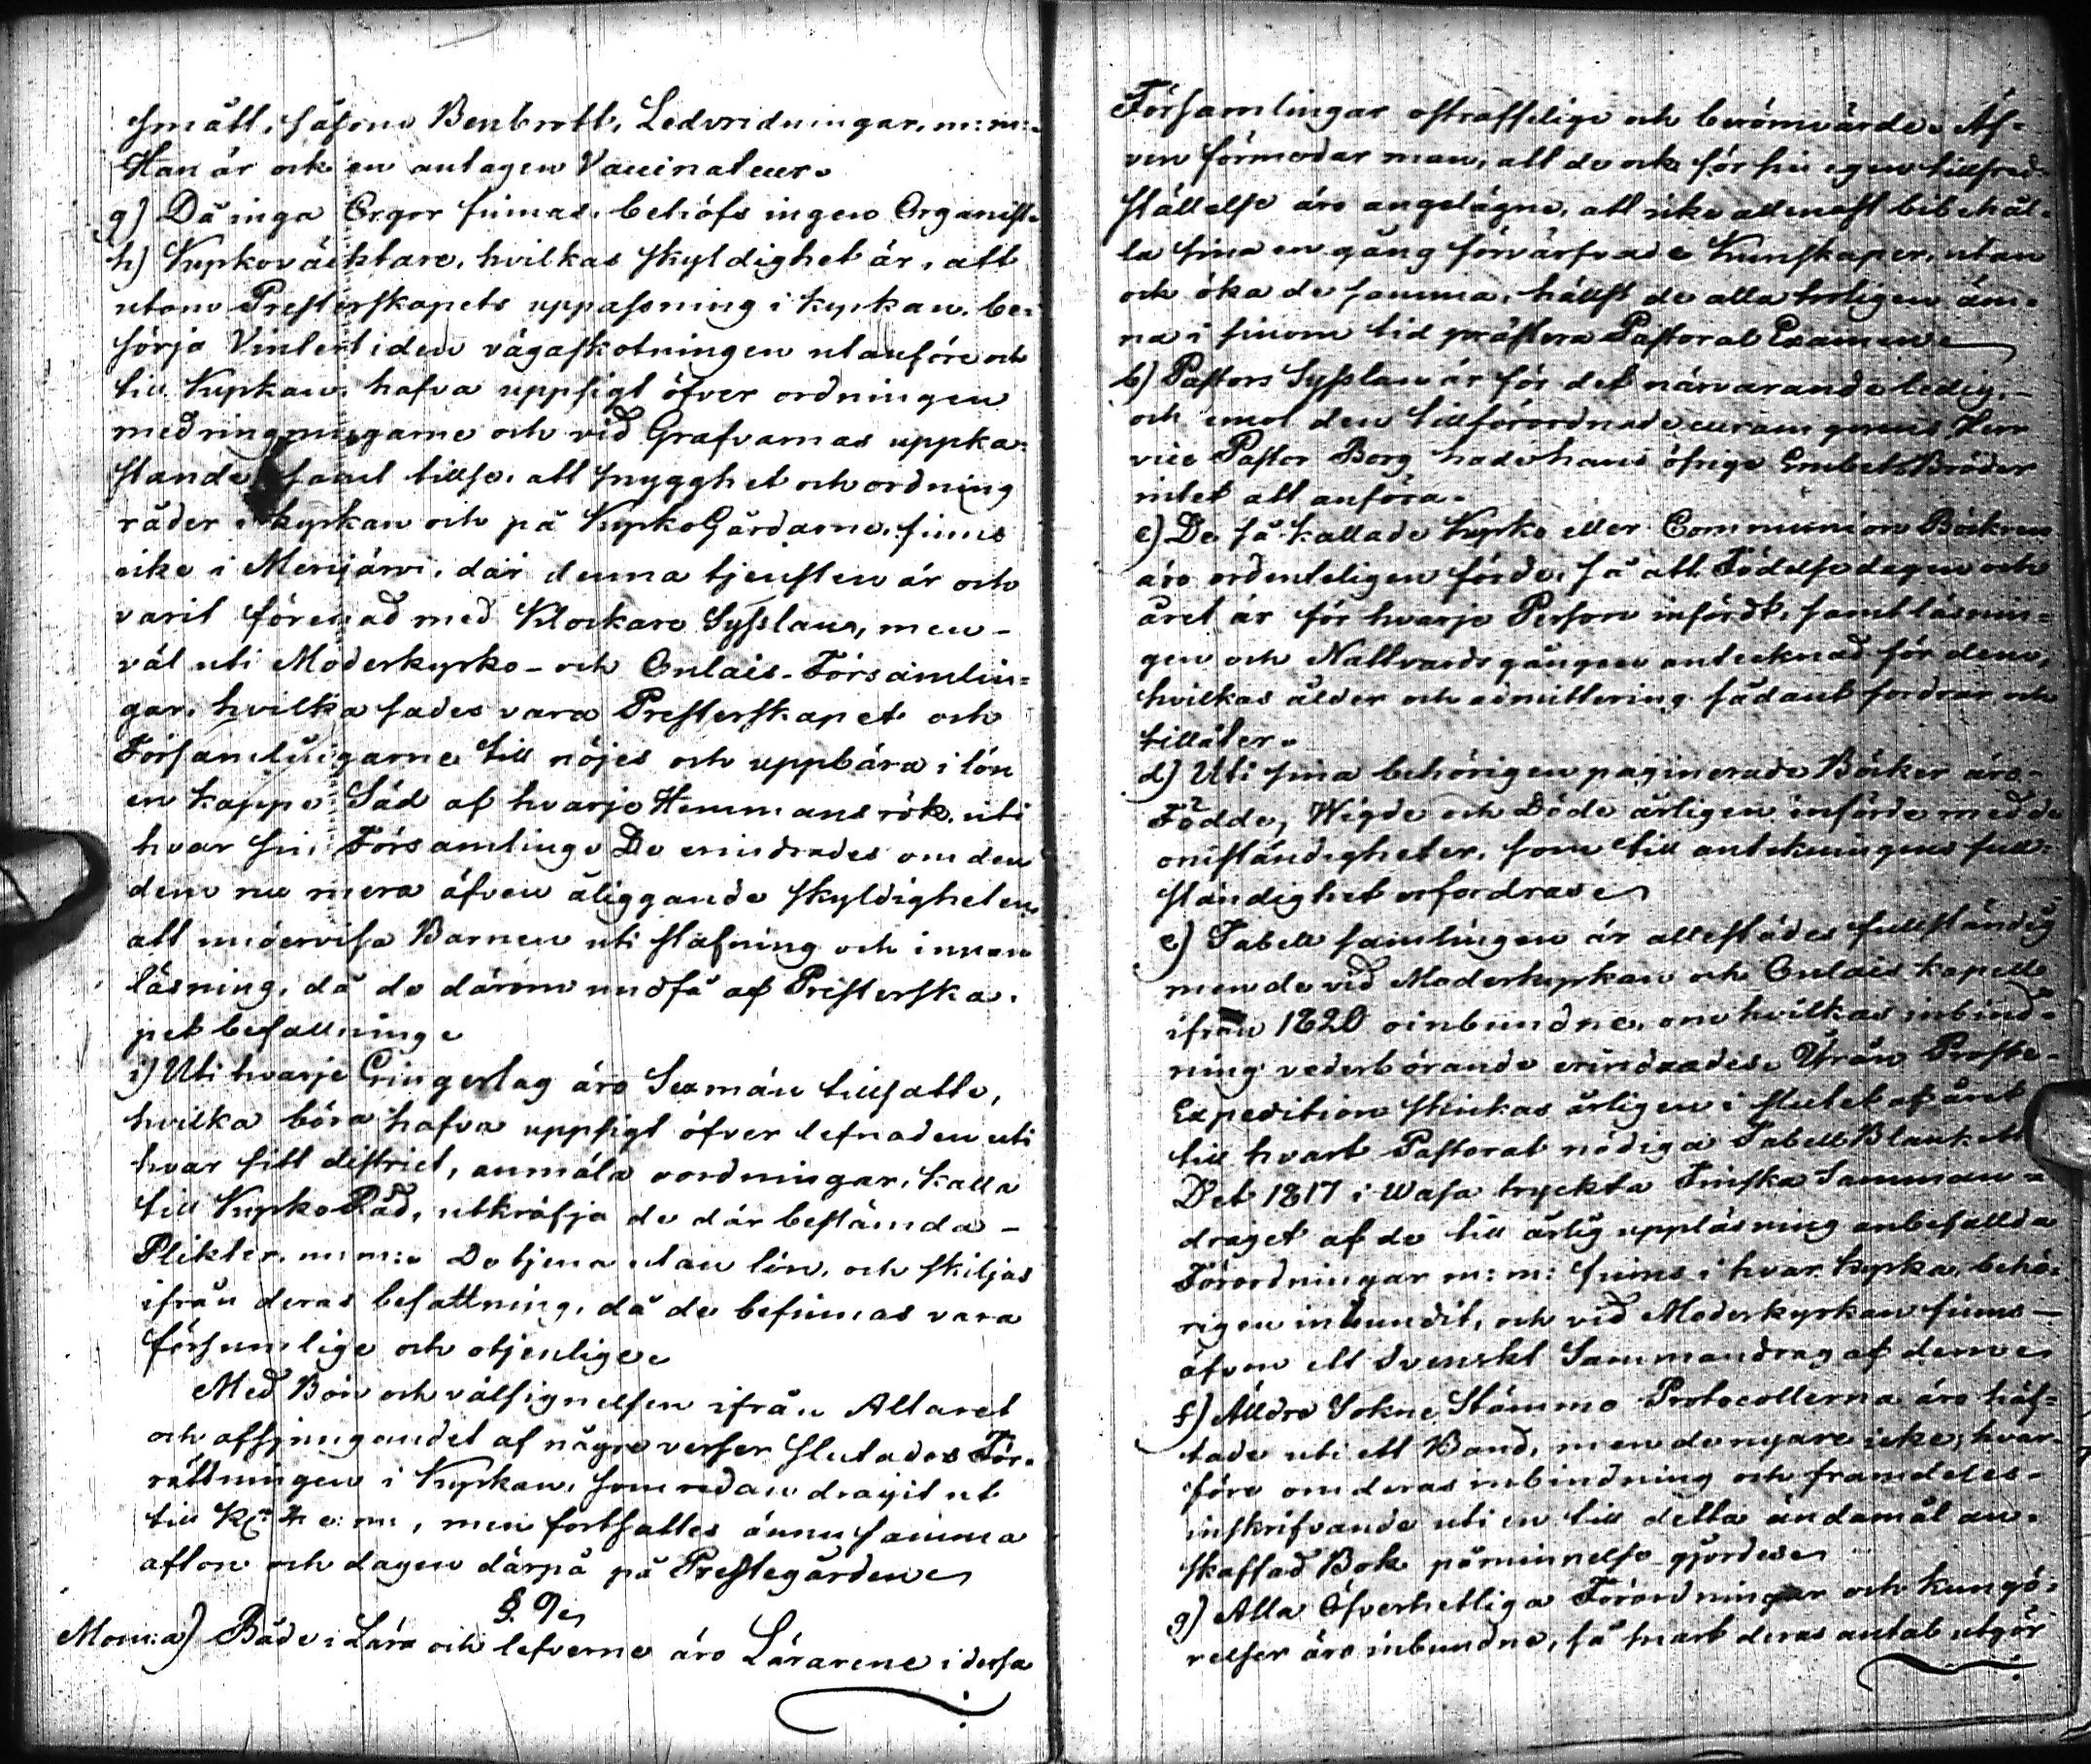 smått, såsom Benbrott, Ledvridningar, m: m:
Han är ock en antagen Vaccinateur.
g) Då inga Orgor finnas, behöfs ingen Organist.
h) Kyrkoväktare, hvilkas skyldighet är, att
utom Presterskapets uppassning i kyrkan, be-
sörja Vintertiden vägaskotningen utanföre och
till Kyrkan, hafva uppsigt öfver ordningen
med ringningarne och vid Grafvarnas uppka-
stande, samt tillse, att snygghet och ordning
råder i kyrkan och på KyrkoGårdarne, finnes
icke i Merijärvi, där denna tjensten är och
varit förenad med Klockare Sysslan, men -
väl uti Moderkyrko- och Oulais-Församlin=
gar, hvilka sades vara Presterskapet och
Församlingarne till nöjes och uppbära i lön
en kappe Säd af hvarje Hemmans rök, uti
hvar sin Församling. De erindrades om den
dem nu mera äfven åliggande skyldigheten,
att undervisa Barnen uti stafning och innan
läsning, då de därom undfå af Presterska-
pet befallning.
i) Uti hvarje Gringerlag äro Sexmän tillsatte,
hvilka böra hafva uppsigt öfver lefnaden uti
hvar sitt district, anmäla oordningar, kalla
till KyrkoRåd, utkräfja de där bestämda -
Plikter, m: m:. De tjena utan lön, och skiljas
ifrån deras befattning, då de befinnas vara
försumlige och otjenlige.
Med Bön och välsignelsen ifrån Altaret
och afsjungandet af några verser slutades För-
rättningen i Kyrkan, som redan dragit ut
till Kl. e: m:, men fortsattes ännu samma
afton och dagen därpå på Prestegården.
§. 9.
Mom: a) Både i Lära och lefverne äro Lärarene i dessa
Församlingar ostraffelige och berömvärde. Äf-
ven förmodar man, att de ock för sin egen tillfreds-
ställelse äro angelägne, att icke allenast bibehål-
la sina en gång förvärfvade Kunskaper, utan
och öka de samma, hälst de alla troligen äm-
na i sinom tid præstera Pastoral Examen.
b) Pastors Sysslan är för det närvarande ledig, -
och emot den tillförordnade curam gerens, Herr
vice Pastor Borg hade hans öfrige Embets Bröder
intet att anföra.
c) De så kallade Kyrko eller Communion Böckren
äro ordenteligen förde, så att Födelse dagen och
året är för hvarje Person infördt, samt läsnin=
gen och Nattvards gången antecknad för dem,
hvilkas ålder och admittering sådant fordrar och
tillåter.
d) Uti sina behörigen paginerade Böcker äro -
Födde, Wigde och Döde årligen införde med de
omständigheter, som till antekningens full-
ständighet erfordras.
e) Tabell samlingen är allestädes fullständig
men de vid Moderkyrkan och Oulais kapell
ifrån 1820 oinbundne, om hvilkas inbind-
ning vederbörande erindrades. Ifrån Proste-
Expedition skickas årligen i slutet af året
till hvart Pastorat nödiga Tabell Blanketter
Det 1817 i Wasa tryckta Finska Samman-
draget af de till årlig uppläsning anbefallda
Förordningar m: m: finnes i hvar kyrka, behö-
rigen inbundit, och vid Moderkyrkan finnes -
äfven ett Svenskt Sammandrag af dem.
f) Äldre Sokne Stämmo Protocollerna äro häf-
tade uti ett Band, men de nyare icke; hvar-
före om deras inbindning och framdeles -
inskrifvande uti en till detta ändamål an-
skaffad Bok påminnelse gjordes.
g) Alla Öfverhetliga Förordningar och kungö-
relser äro inbundne, så snart deras antal utgör